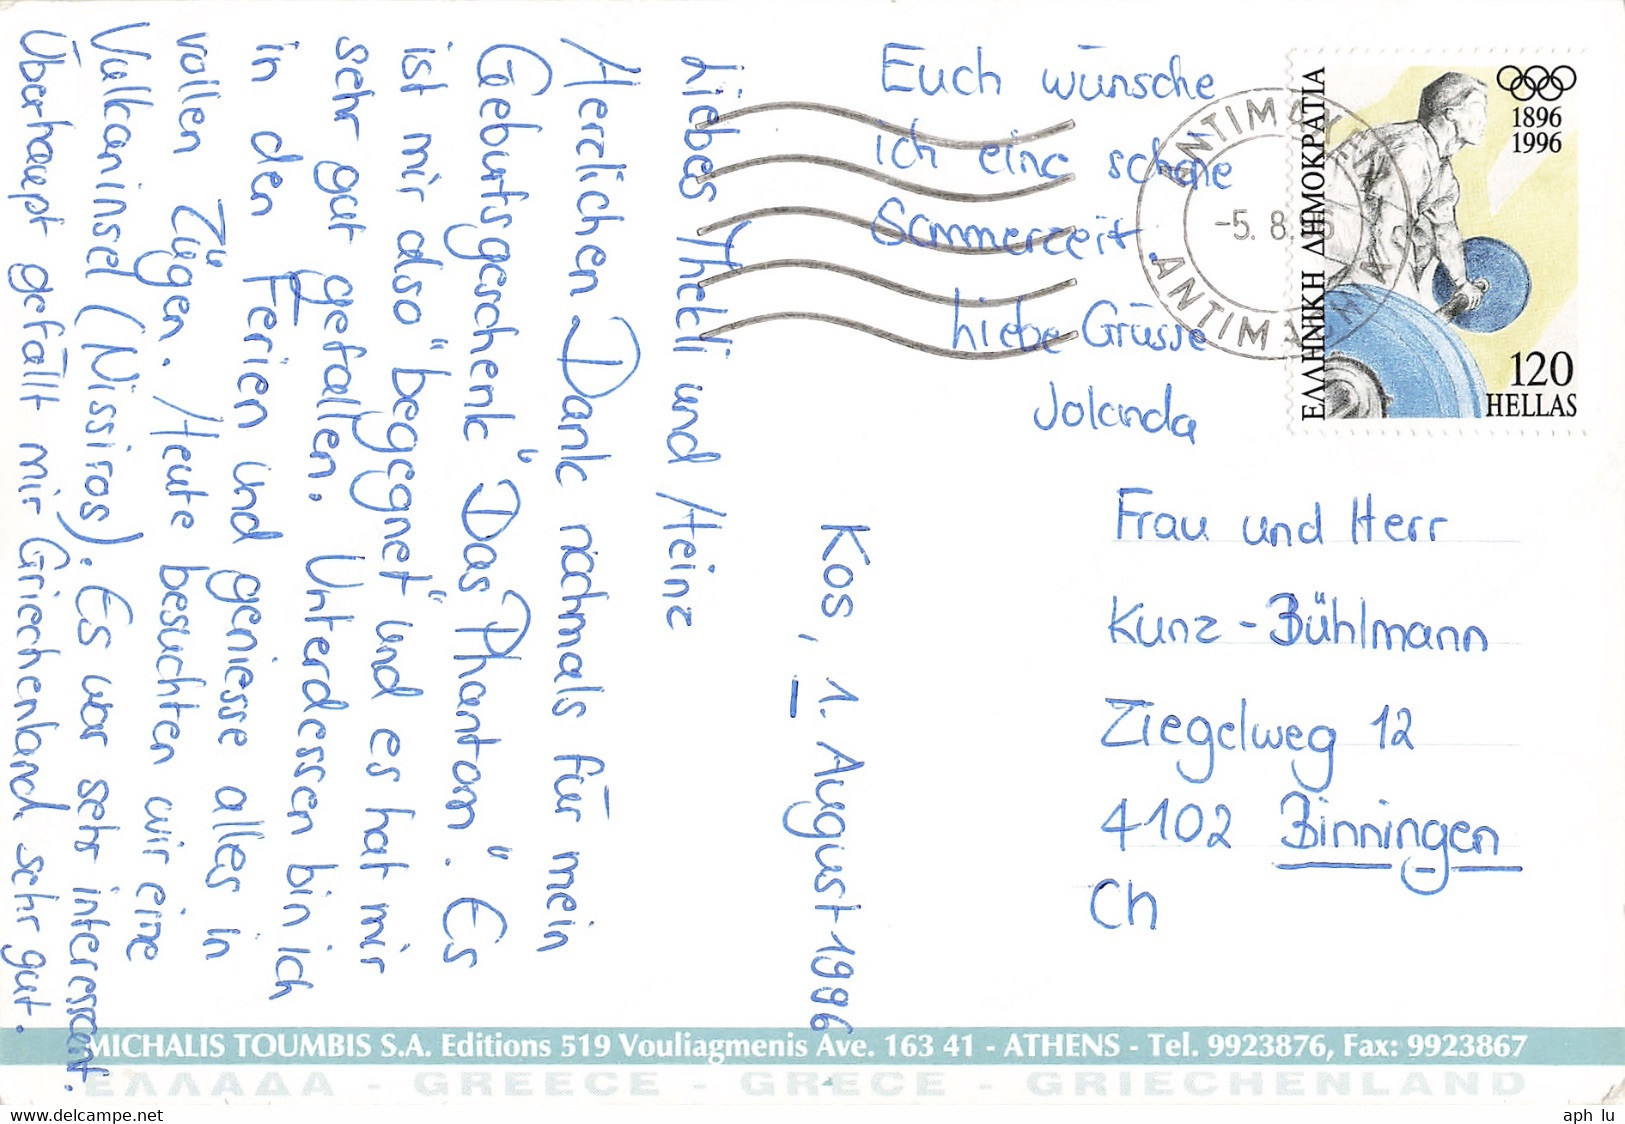 Kos, 1. August 1996
Liebes Thekli und Heinz
Herzlichen Dank nochmals für mein
Geburtsgeschenk "Das Phantom". Es
ist mir also "begegnet" und es hat mir
sehr gut gefallen. Unterdessen bin ich
in den Ferien und geniesse alles in
vollen Zügen. Heute besuchten wir eine
Vulkaninsel (Nissiros). Es war sehr interessant.
Überhaupt gefällt mir Griechenland sehr gut.
Euch wünsche
ich eine schöne
Sommerzeit
Liebe Grüsse
Jolanda
Frau und Herr
Kunz-Bühlmann
Ziegelweg 12
4102 Binningen
Ch
ΕΛΛΗΝΙΚΗ ΔΗΜΟΚΡΑΤΙΑ
1896
1996
120
HELLAS
-5. 8. 96
ANTIMAXEIA
MICHALIS TOUMBIS S.A. Editions 519 Vouliagmenis Ave. 163 41 - ATHENS - Tel. 9923876, Fax: 9923867
ΕΛΛΑΔΑ - GREECE - GRECE - GRIECHENLAND
www.delcampe.net
aph lu